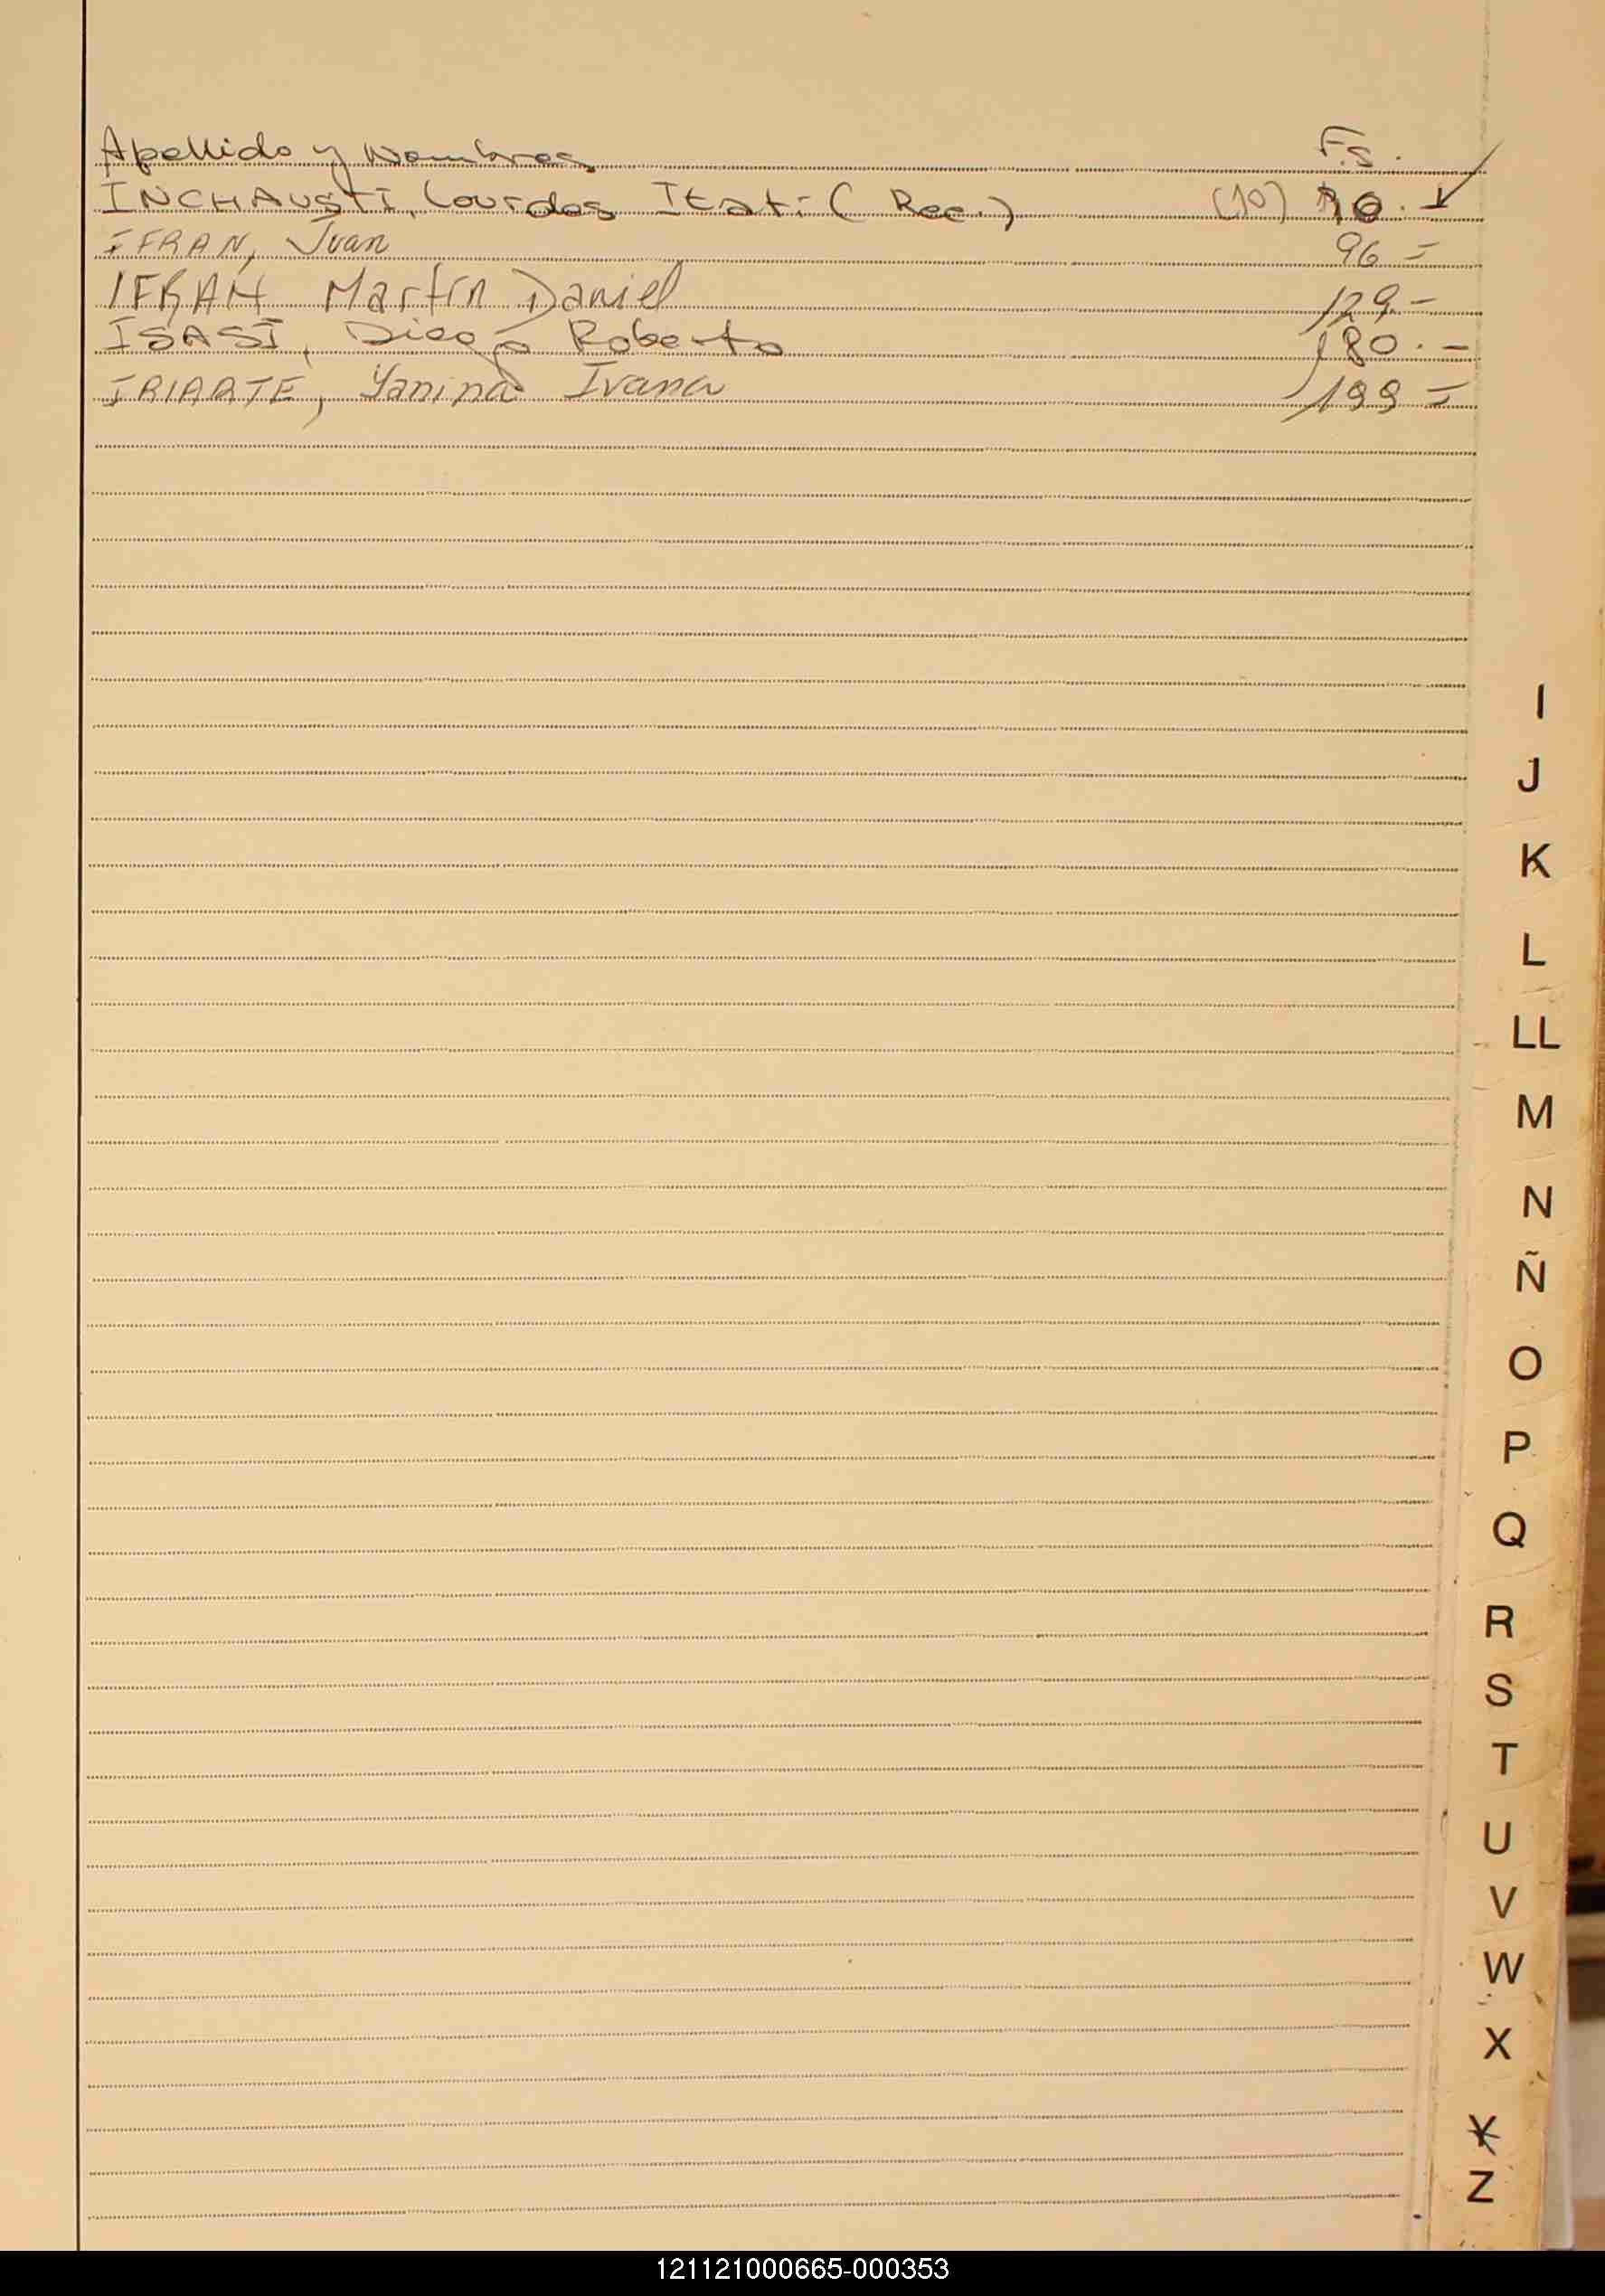 Apellido y Nombres Fs.
INCHAUSTI, Lourdes Itatí (Rec.) (10) 10.
IFRAN, Juan 96 =
IFRAN Martín Daniel 129.-
ISASI, Diego Roberto 180.-
IRIARTE, Yanina Ivana 199 =
I
J
K
L
LL
M
N
Ñ
O
P
Q
R
S
T
U
V
W
X
Y
Z
121121000665-000353